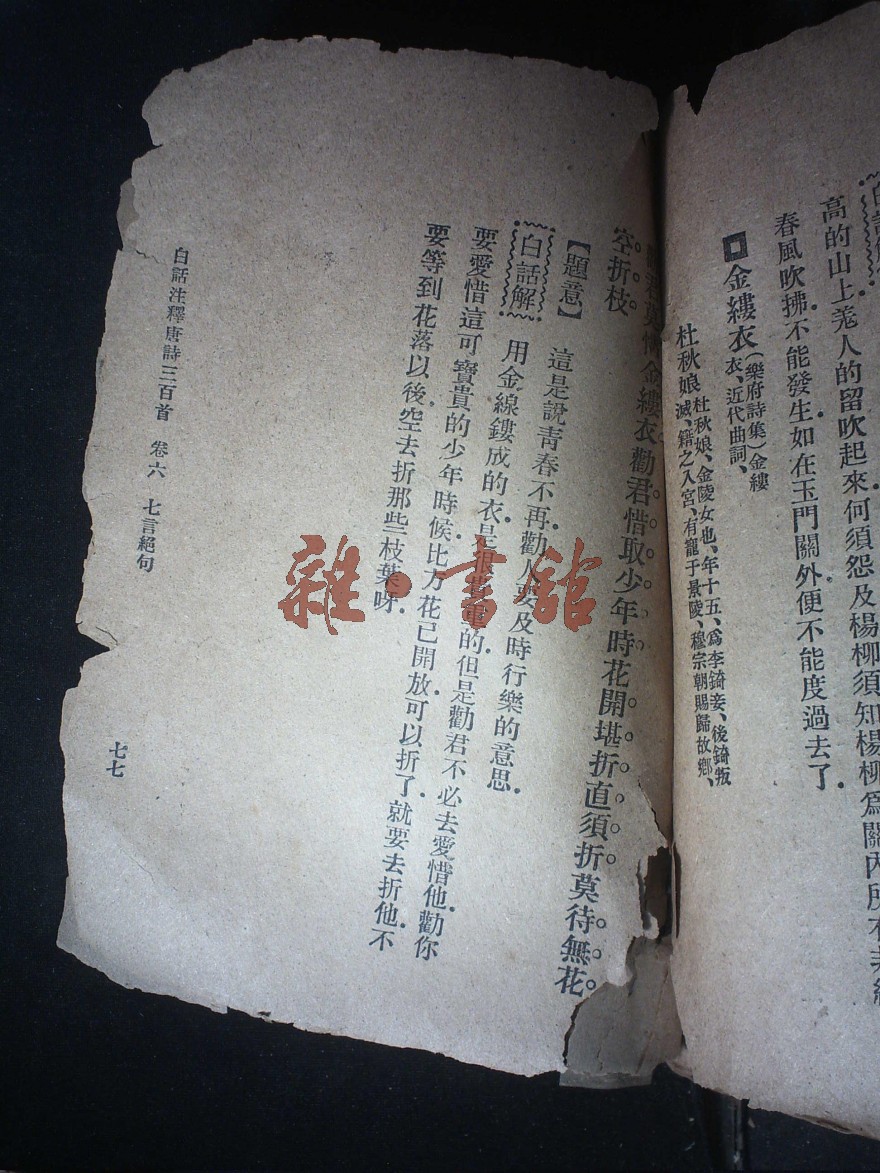 高的山上羗人的留吹起來何須怨及楊柳須知楊柳爲關內所有
春風吹拂.不能發生如在玉門關外便不能度過去了.
金縷衣(樂府詩集)金縷
衣、近代曲詞、
杜秋娘 杜秋娘、金陵女也、年十五、爲李錡妾、後錡叛
滅、籍之入宮、有寵于景陵、穆宗朝賜歸故鄉、
君莫惜金縷衣。勸君惜取少年時。花開堪折直須折。莫待無花。
空折枝。
【題意】 這是說青春不再.勸人要及時行樂的意思.
白話解 用金線鏤成的衣.是很 的.但是勸君不必去愛惜他.勸你
要愛惜這可寶貴的少年時候.比方花已開放.可以折了.就要去折他.不
要等到花落以後.空去折那些枝葉呀.
白話注釋唐詩三百首 卷六 七言絕句
七七
雜·書館